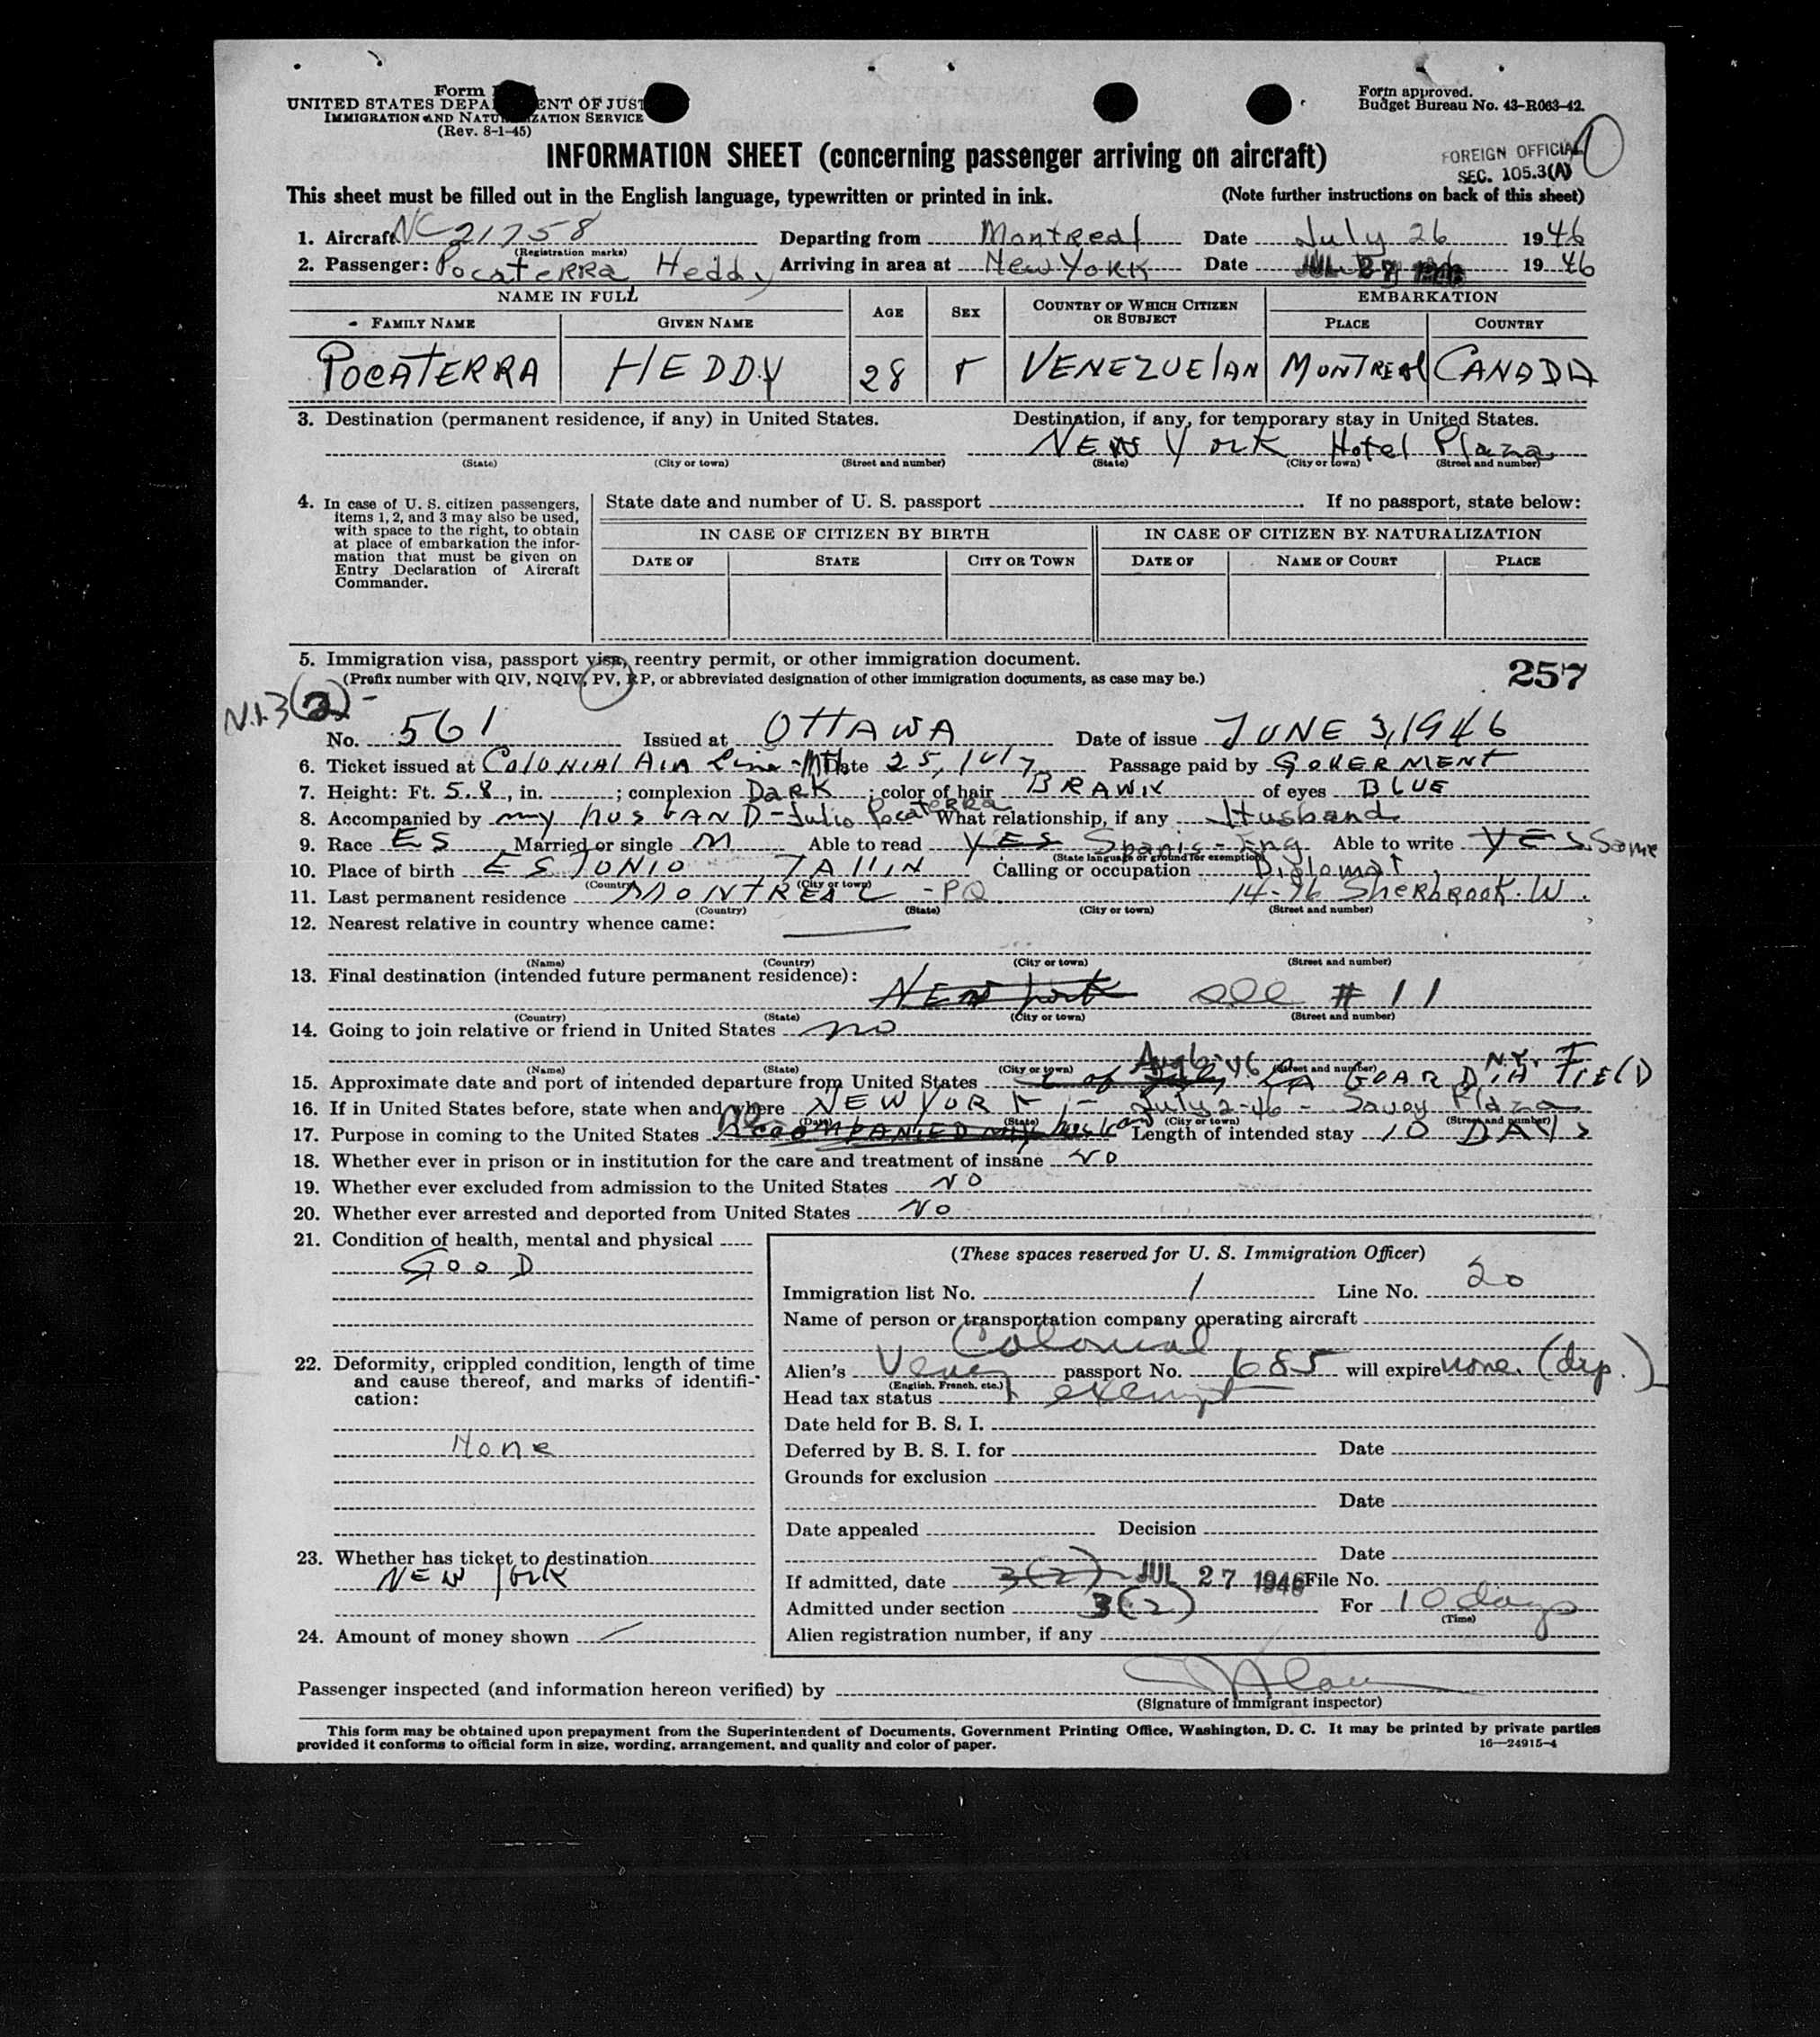 Form
UNITED STATES DEPA ENT OF JUST
IMMIGRATION AND NATU IZATION SERVICE
(Rev. 8-1-45)
Form approved.
Budget Bureau No. 43-R063-42.
INFORMATION SHEET (concerning passenger arriving on aircraft)
FOREIGN OFFICIAL
SEC. 105.3(A)
This sheet must be filled out in the English language, typewritten or printed in ink. (Note further instructions on back of this sheet)
1. Aircraft NC 21758 Departing from Montreal Date July 26 1946
(Registration marks)
2. Passenger: Pocaterra Heddy Arriving in area at New York Date 1946
NAME IN FULL AGE SEX COUNTRY OF WHICH CITIZEN OR SUBJECT EMBARKATION
FAMILY NAME GIVEN NAME PLACE COUNTRY
POCATERRA HEDDY 28 F VENEZUELAN MONTREAL CANADA
3. Destination (permanent residence, if any) in United States. Destination, if any, for temporary stay in United States.
NEW YORK Hotel Plaza
(State) (City or town) (Street and number) (State) (City or town) (Street and number)
4. In case of U. S. citizen passengers, items 1, 2, and 3 may also be used, with space to the right, to obtain at place of embarkation the information that must be given on Entry Declaration of Aircraft Commander.
State date and number of U. S. passport If no passport, state below:
IN CASE OF CITIZEN BY BIRTH IN CASE OF CITIZEN BY NATURALIZATION
DATE OF STATE CITY OR TOWN DATE OF NAME OF COURT PLACE
5. Immigration visa, passport visa, reentry permit, or other immigration document.
(Prefix number with QIV, NQIV, PV, RP, or abbreviated designation of other immigration documents, as case may be.)
257
3(2)
No. 561 Issued at OTTAWA Date of issue JUNE 3, 1946
6. Ticket issued at COLONIAL AIR Line - Mtl. Date 25, July Passage paid by GOVERNMENT
7. Height: Ft. 5.8, in. ; complexion DARK ; color of hair BRAWN of eyes BLUE
8. Accompanied by my husband - Julio Pocaterra What relationship, if any Husband
9. Race ES Married or single M Able to read YES Spanis - Eng Able to write YES. Same
(State language or ground for exemption)
10. Place of birth ESTONIO TALLIN Calling or occupation Diplomat
(Country) (City or town)
11. Last permanent residence MONTREAL - PQ 14-76 SHERBROOK. W.
(Country) (State) (City or town) (Street and number)
12. Nearest relative in country whence came:
(Name) (Country) (City or town) (Street and number)
13. Final destination (intended future permanent residence):
New York see # 11
(Country) (State) (City or town) (Street and number)
14. Going to join relative or friend in United States no
(Name) (State) (City or town) (Street and number)
15. Approximate date and port of intended departure from United States Aug 6-46 LA GUARDIA FIELD N.Y.
16. If in United States before, state when and where NEW YORK - July 2-46 - Savoy Plaza
(Date) (State) (City or town) (Street and number)
17. Purpose in coming to the United States ACCOMPANIED my husband Length of intended stay 10 DAYS
18. Whether ever in prison or in institution for the care and treatment of insane NO
19. Whether ever excluded from admission to the United States NO
20. Whether ever arrested and deported from United States NO
21. Condition of health, mental and physical
GOOD
22. Deformity, crippled condition, length of time and cause thereof, and marks of identification:
None
23. Whether has ticket to destination
NEW YORK
24. Amount of money shown
(These spaces reserved for U. S. Immigration Officer)
Immigration list No. 1 Line No. 20
Name of person or transportation company operating aircraft
Colonial
Alien's Venez passport No. 685 will expire none. (dip.)
(English, French, etc.)
Head tax status exempt
Date held for B. S. I.
Deferred by B. S. I. for Date
Grounds for exclusion
Date
Date appealed Decision
Date
If admitted, date 3(2) JUL 27 1946 File No.
Admitted under section 3(2) For 10 days
(Time)
Alien registration number, if any
Passenger inspected (and information hereon verified) by
(Signature of immigrant inspector)
This form may be obtained upon prepayment from the Superintendent of Documents, Government Printing Office, Washington, D. C. It may be printed by private parties
provided it conforms to official form in size, wording, arrangement, and quality and color of paper. 16—24915-4